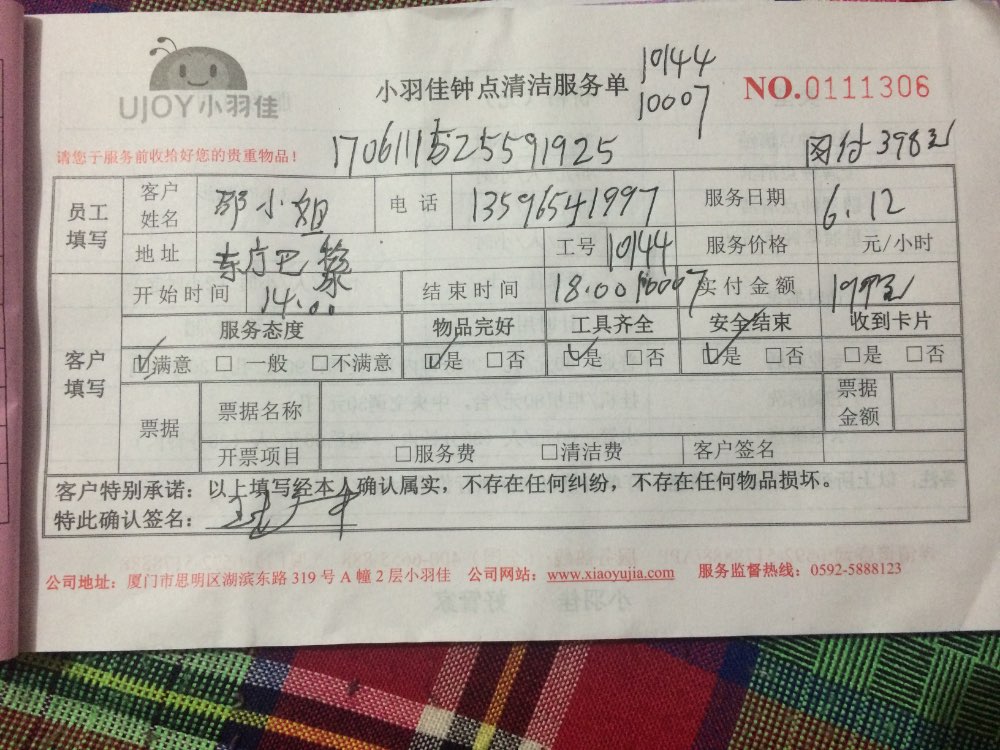 UJOY小羽佳
小羽佳钟点清洁服务单
10144
10007
NO.0111306
请您于服务前收拾好您的贵重物品!
网付398元
员工填写 客户姓名 邵小姐 电话 13596541997 服务日期 6.12
地址 东方巴黎 工号 10144 服务价格 元/小时
开始时间 14.00 结束时间 18.00 10007 实付金额 199元
客户填写 服务态度 物品完好 工具齐全 安全结束 收到卡片
☑满意 □一般 □不满意 ☑是 □否 ☑是 □否 ☑是 □否 □是 □否
票据 票据名称 票据金额
开票项目 □服务费 □清洁费 客户签名
客户特别承诺：以上填写经本人确认属实，不存在任何纠纷，不存在任何物品损坏。
特此确认签名：
公司地址：厦门市思明区湖滨东路 319 号 A 幢 2 层小羽佳 公司网站：www.xiaoyujia.com 服务监督热线：0592-5888123